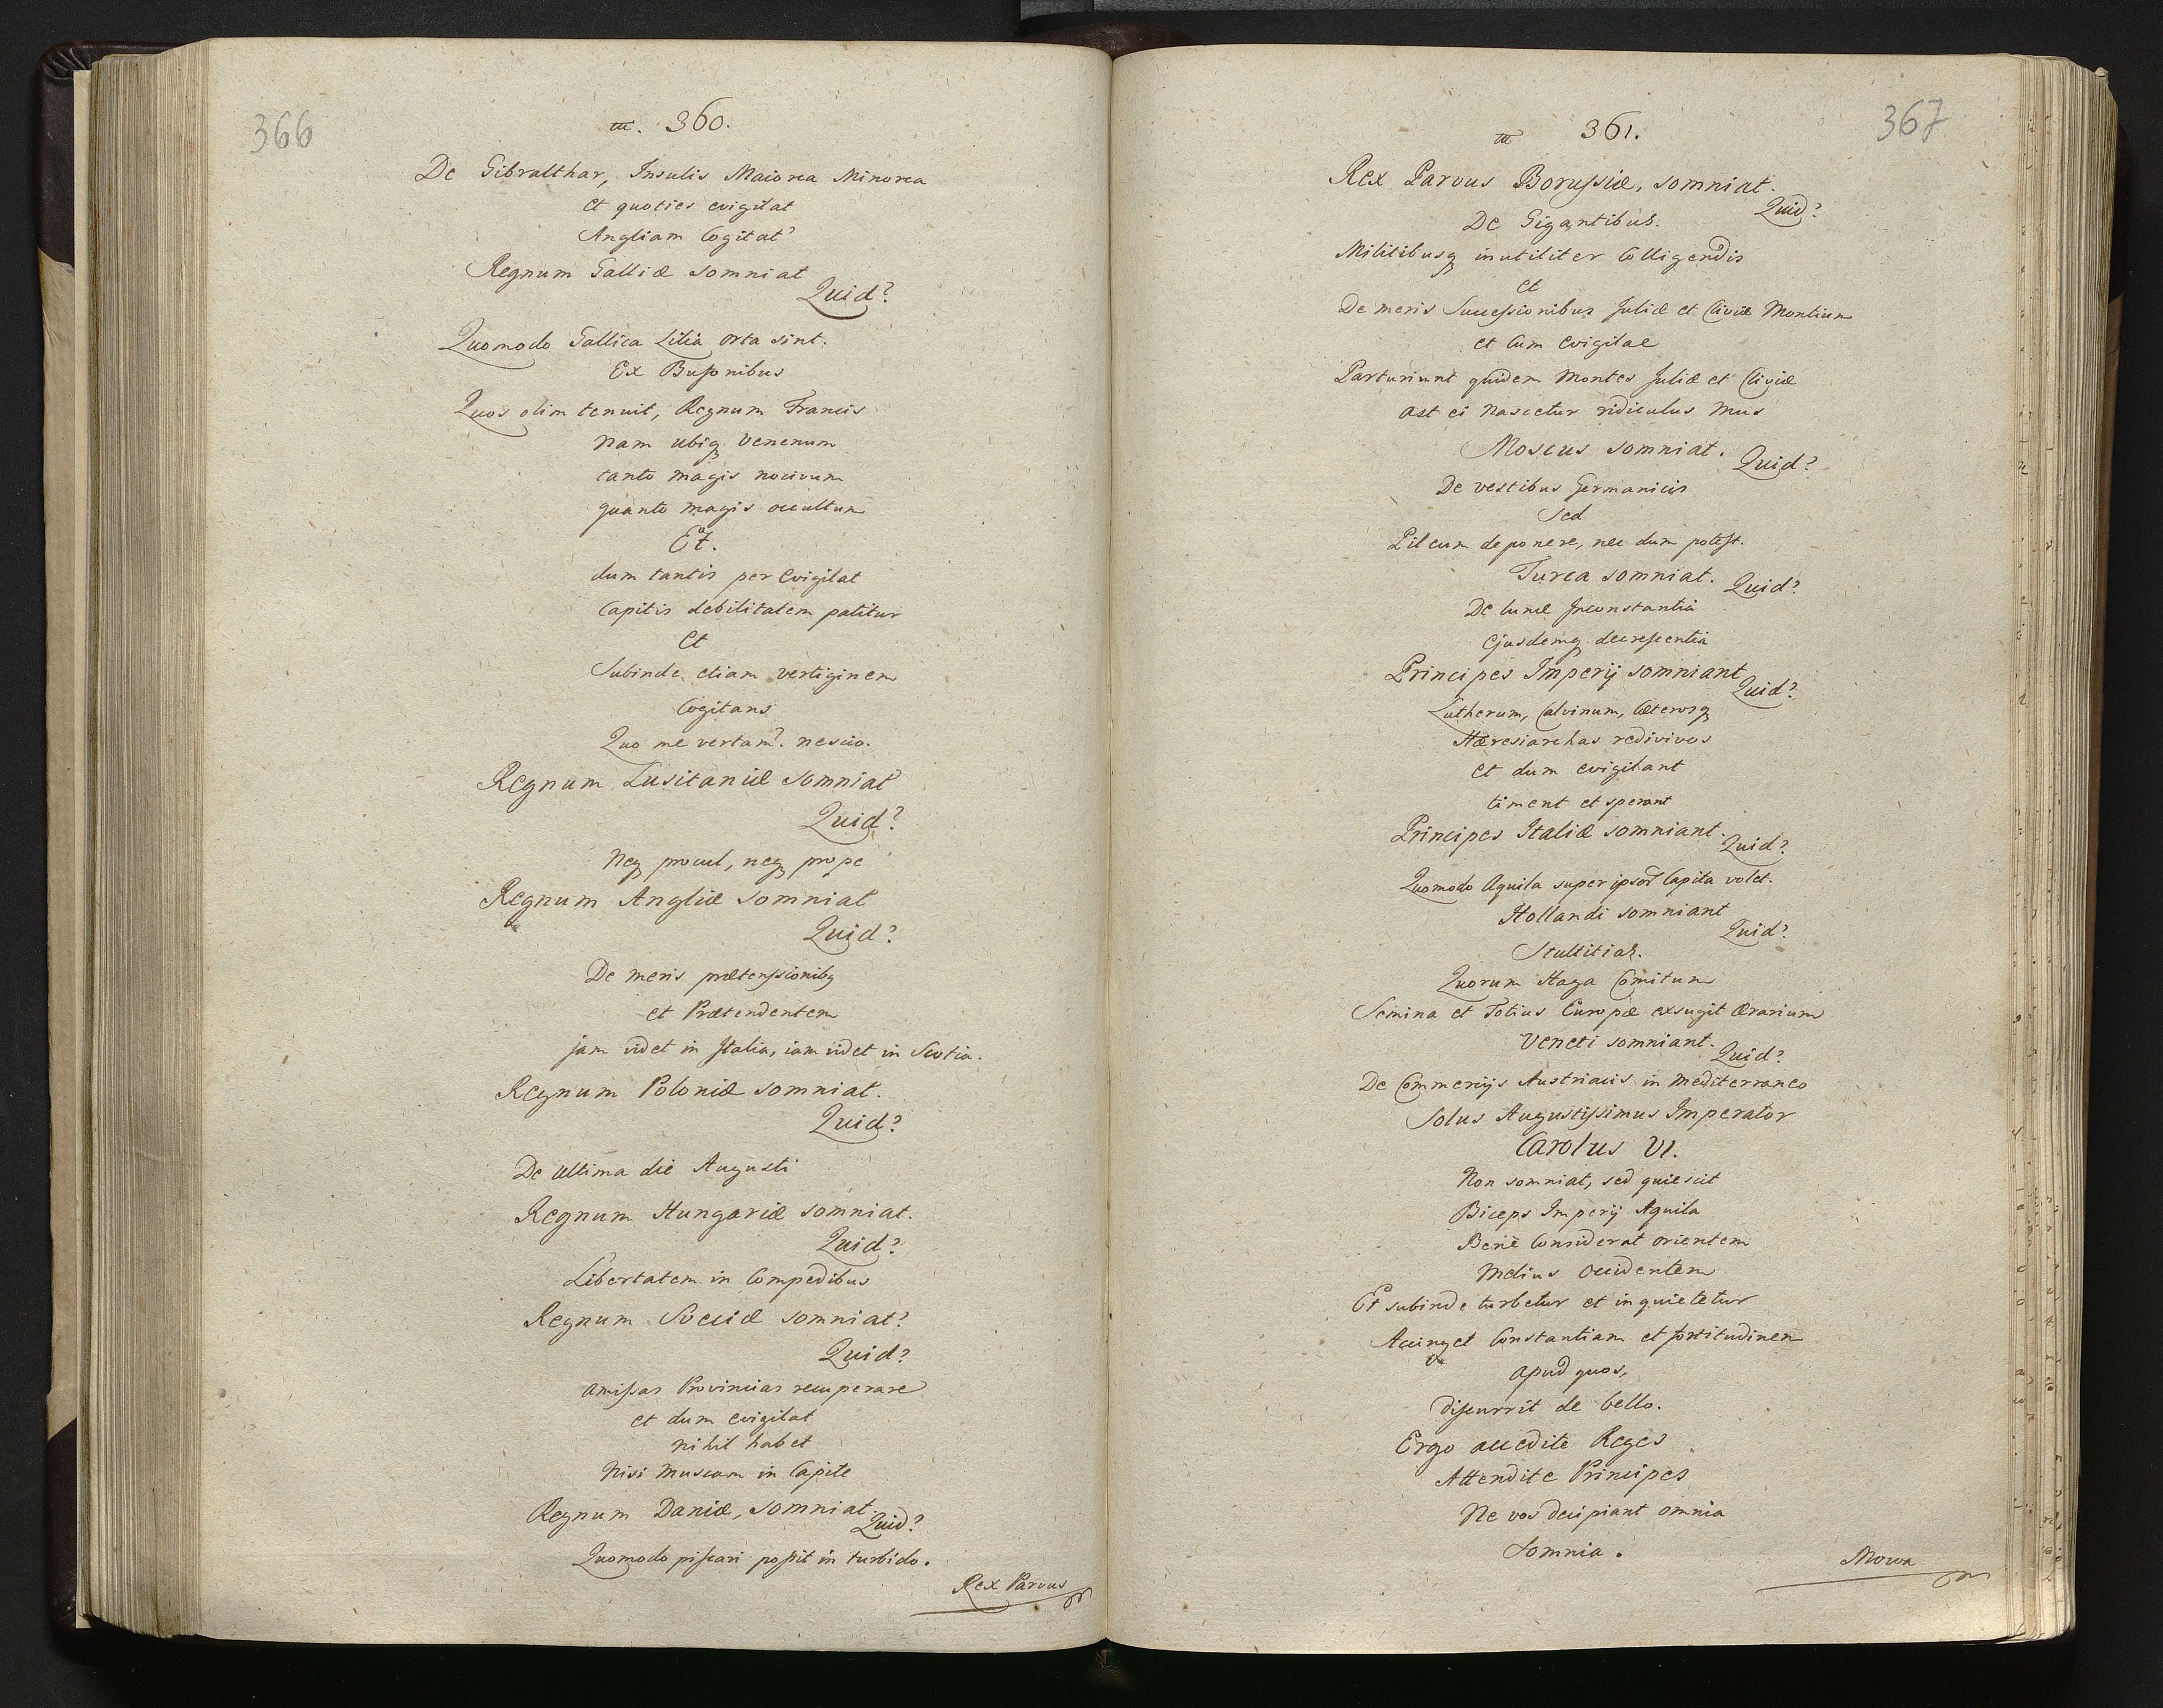 366
m. 360.
De Gibralthar, Insulis Maiorca Minorca
et quoties evigilat
Angliam Cogitat?
Regnum Galliæ somniat
Quid?
Quomodo Gallica Lilia orta sint.
Ex Bufonibus
Quos olim tenuit, Regnum Francis
nam ubiq venenum
tanto magis nocivum
quanto magis occultum
Et.
dum tantis per evigilat
Capitis debilitatem patitur
Et
Subinde etiam vertiginem
Cogitans
Quo me vertam? nescio.
Regnum Lusitaniæ somniat
Quid?
Neq procul, neq prope
Regnum Angliæ somniat
Quid?
De meris prætenssionibq
et Prætendentem
jam videt in Italia, iam videt in Scotia.
Regnum Poloniæ somniat.
Quid?
De ultima die Augusti
Regnum Hungariæ somniat.
Quid?
Libertatem in Compedibus
Regnum Sveciæ somniat?
Quid?
amissas Provincias recuperare
et dum evigilat
nihil habet
Nisi muscam in Capite
Regnum Daniæ, somniat.
Quid?
Quomodo piscari possit in turbido.
Rex Parvus
367
m 361.
Rex Parvus Borussiæ, somniat.
Quid?
De Gigantibus.
Militibusq inutiliter Colligendis
et
De meris Successionibus Juliæ et Cliviæ Montium
et Cum Evigilae
Parturiunt quidem Montes Juliæ et Cliviæ
ast ei nascetur ridiculus mus
Moscus somniat.
Quid?
De vestibus Germanicis
Sed
Pileum deponere, nec dum potest.
Turca somniat.
Quid?
De lunæ Inconstantia
Ejusdemq decrescentia
Principes Imperij somniant
Quid?
Lutherum, Calvinum, Cæterosq
Hæresiarchas redivivos
et dum evigilant
timent et sperant
Principes Italiæ somniant.
Quid?
Quomodo Aquila super ipsor Capita volet.
Hollandi somniant
Quid?
Stultitias.
Quorum Haga Comitum
Semina et Totius Europæ exsugit Ærarium
Veneti somniant.
Quid?
De Commercijs Austriacis in Mediterraneo
Solus Augustissimus Imperator
Carolus VI.
Non somniat, sed quiescit
Biceps Imperij Aquila
Benè Considerat orientem
Melius occidentem
Et subinde turbetur et inquietetur
Accinget Constantiam et fortitudinem
apud quos,
discurrit de bello.
Ergo accedite Reges
Attendite Principes
Ne vos decipiant omnia
somnia.
Mowa